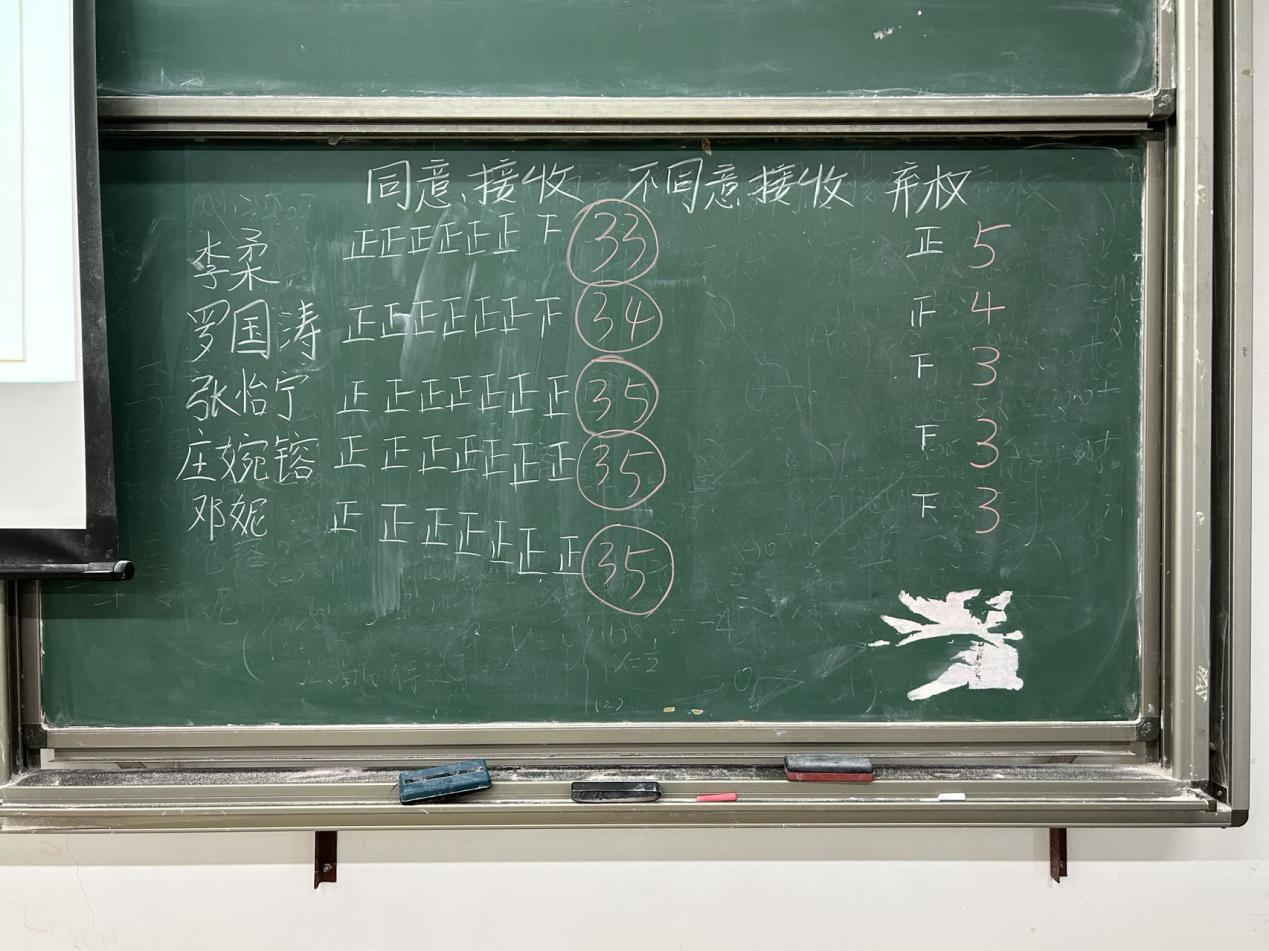 同意接收 不同意接收 弃权
李柔 正正正正正正下 33 正 5
罗国涛 正正正正正正下 34 正 4
张怡宁 正正正正正正正 35 下 3
庄婉镕 正正正正正正正 35 下 3
邓妮 正正正正正正正 35 下 3